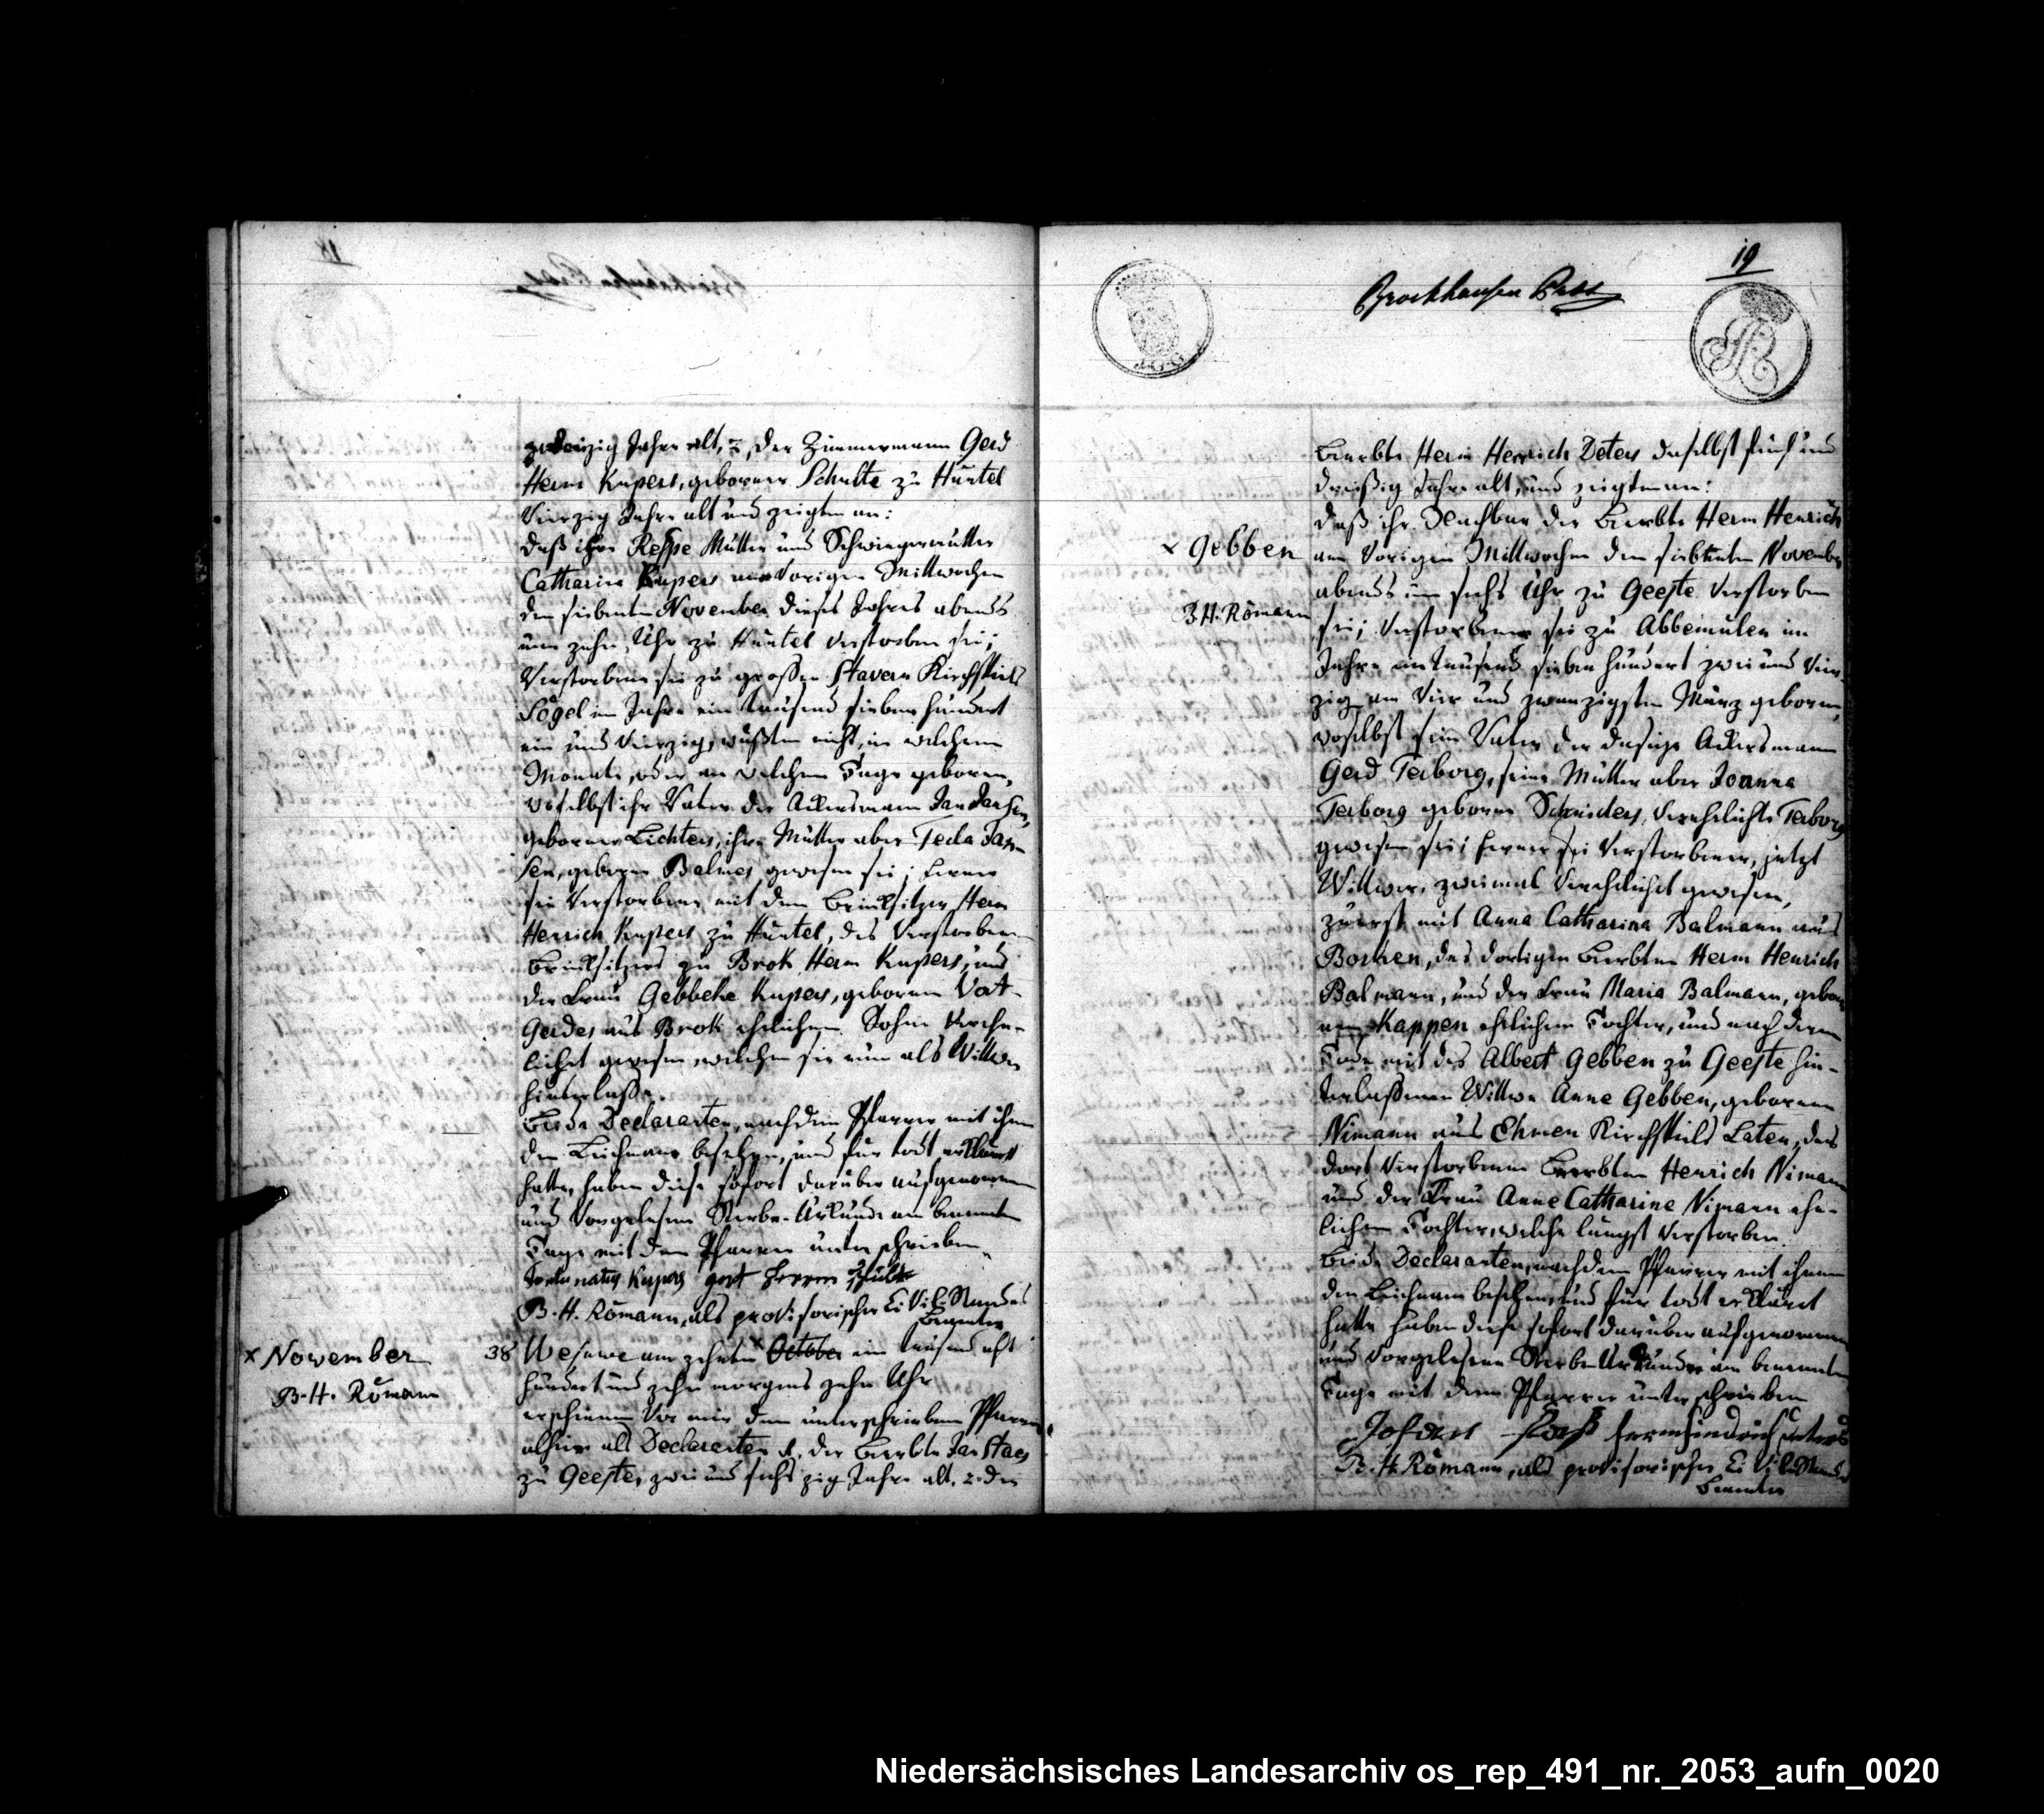 18
19
Brockhausen
zwanzig Jahre alt, 2, der Zimmermann Gerd
Herm Kupers, geborner Schulte zu Huntel
Vierzig Jahre alt und zeigten an:
daß ihre Respe Mutter und Schwiegermutter
Catharina Kupers am Vorigen Mittwochen
den siebenten November dieses Jahres abends
um zehn Uhr zu Huntel Verstorben sei;
Verstorbene sei zu großen Stavern Kirchspiels
Sögel im Jahre ein tausend sieben hundert
ein und Vierzig, wußten nicht, in welchem
Monate, oder an welchem Tage geboren,
woselbst ihr Vater der Ackersmann Jan Jansen,
geborner Lichters, ihre Mutter aber Tecla Jan-
sen, geborne Balmes gewesen sei; ferner
sei Verstorbene mit dem Brinksitzer Herm
Henrich Kupers zu Huntel, des Verstorbenen
Brinksitzers zu Brok Herm Kupers, und
der Frau Gebbeke Kupers, gebornen Vat-
Gerdes aus Brok ehelichem Sohne Vereh-
lichet gewesen, welchen sie nun als Wittwer
hinterlaße.
Beide Declaranten, nachdem Pfarrer mit ihnen
den Leichnam besehen, und für todt erkläret
hatte, haben diese sofort darüber aufgenommene
und Vorgelesene Sterbe-Urkunde am benannten
Tage mit dem Pfarrer unterschrieben
Fortunatus Kupers gert Herm Schulte
B. H. Römann, als provisorischer Civil-Standes
Beamter
x November
B. H. Römann
38
Wesuwe am zehnten x October ein tausend acht
hundert und zehn morgens zehn Uhr
erschienen Vor mir dem unterschriebenen Pfarrer
alhier als Declaranten 1. der Beerbte Jan Staes
zu Geeste, zwei und sechszig Jahre alt, 2. der
Beerbte Herm Henrich Deters daselbst fünf und
dreißig Jahre alt, und zeigten an:
daß ihr Nachbar der Beerbte Herm Henrich
x Gebben
am Vorigen Mittwochen den siebenten November
abends um sechs Uhr zu Geeste Verstorben
B. H. Römann
sei; Verstorbener sei zu Abbemulen im
Jahre ein tausend sieben hundert zwei und Vier-
zig am Vier und zwanzigsten März geboren,
woselbst sein Vater der dasige Ackersmann
Gerd Terborg, seine Mutter aber Joanna
Terborg geborne Schniders, Verehelichte Terborg
gewesen sei; ferner sei Verstorbener, jetzt
Wittwer, zweimal Verehelichet gewesen,
zuerst mit Anna Catharina Balmann aus
Borken, des dortigen Beerbten Herm Henrich
Balmann, und der Frau Maria Balmann, gebor-
nen Kappen ehelichen Tochter, und nach deren
Tode mit des Albert Gebben zu Geeste hin-
terlaßenen Wittwe Anne Gebben, gebornen
Nimann aus Ehmen Kirchspiels Laten, des
dort Verstorbenen Beerbten Henrich Nimann
und der Frau Anne Catharine Nimann ehe-
lichen Tochter, welche längst Verstorben.
Beide Declaranten, nachdem Pfarrer mit ihnen
den Leichnam besehen, und für todt erkläret
hatte haben diese sofort darüber aufgenommene
und Vorgelesene Sterbe Urkunde am benannten
Tage mit dem Pfarrer unterschrieben
Johan hermhindrich deters
B. H. Römann, als provisorischer Civil-Standes
Beamter
Niedersächsisches Landesarchiv os_rep_491_nr._2053_aufn_0020